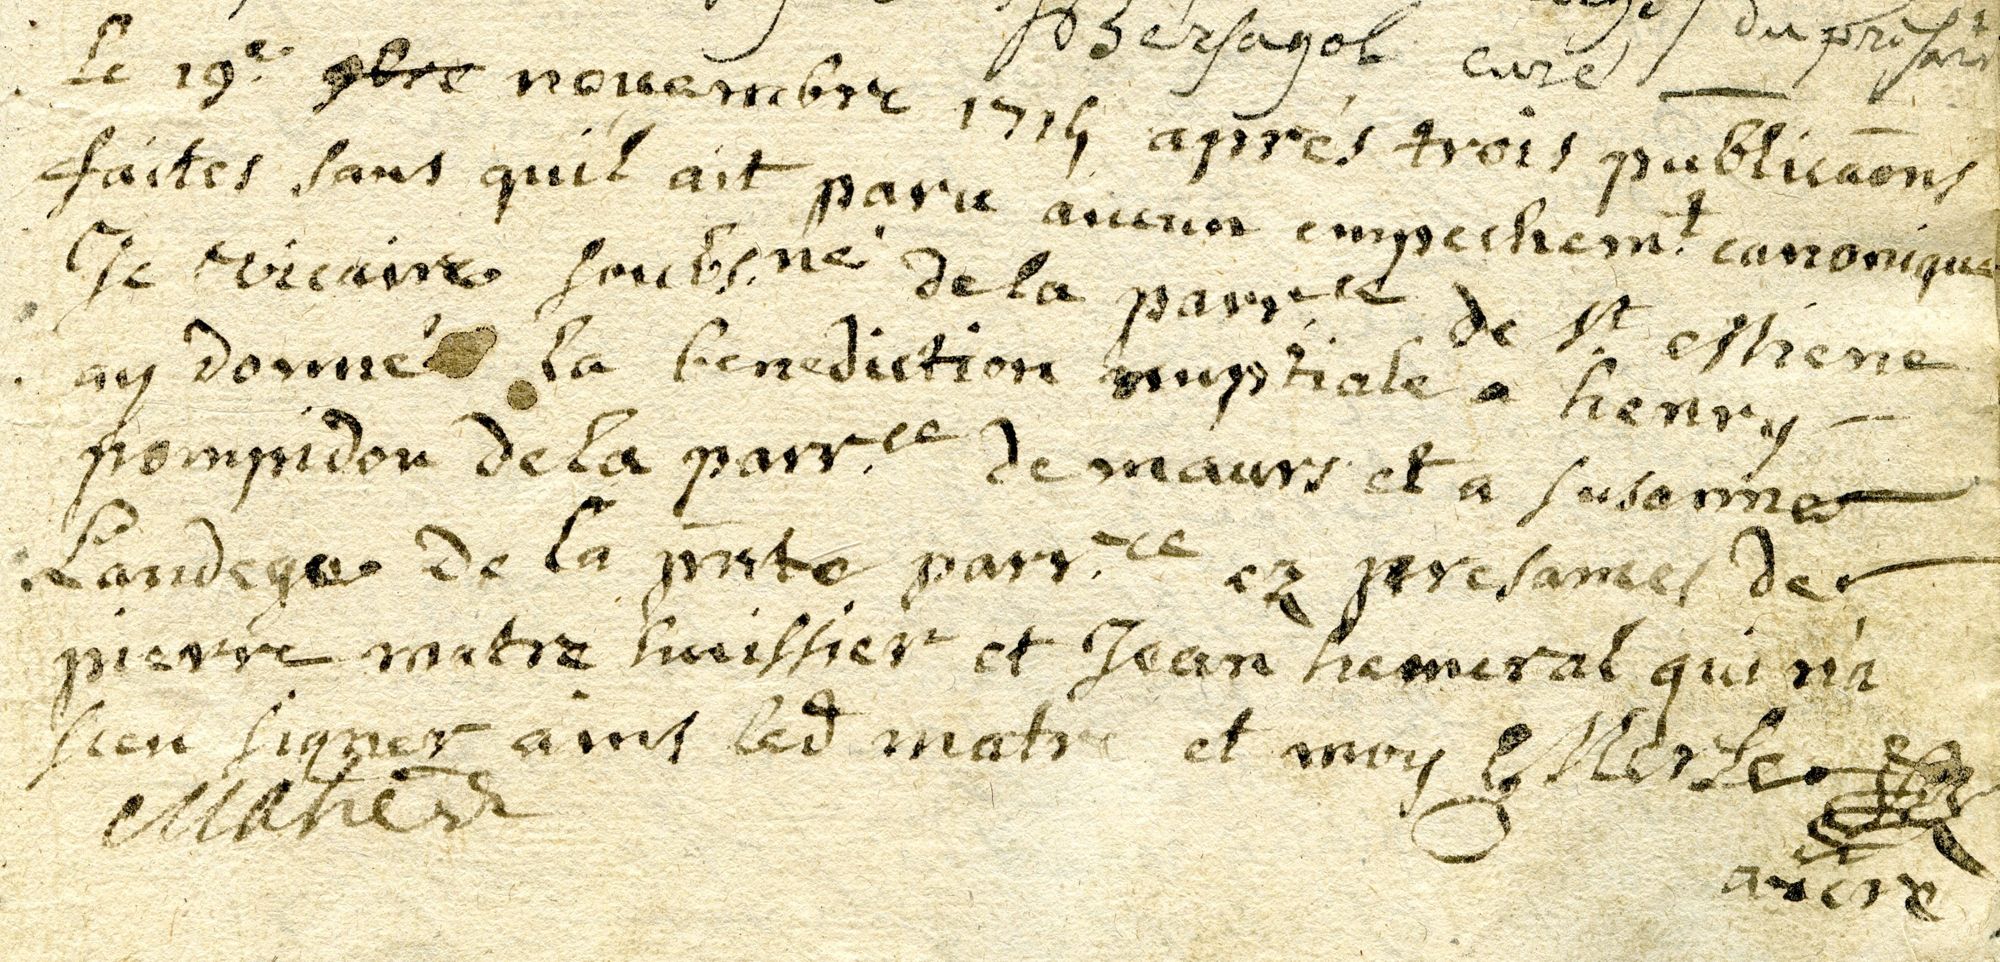 Bersagol curé du presant
Le 19e. 9bre novambre 1715 aprés trois publicaons
faites sans quil ait paru aucun empechemt. canonique
Je vicaire soubs.né de la parr.ce de st estiene
ay donné la benediction nuptiale a henry
pompidou de la parr.ce de maurs et a susanne
Landege de la pnte parr.ce ez presances de
pierre matre huissier et Jean hemeral qui n'a
sceu signer ains led matre et moy Merle
Matre
vicre